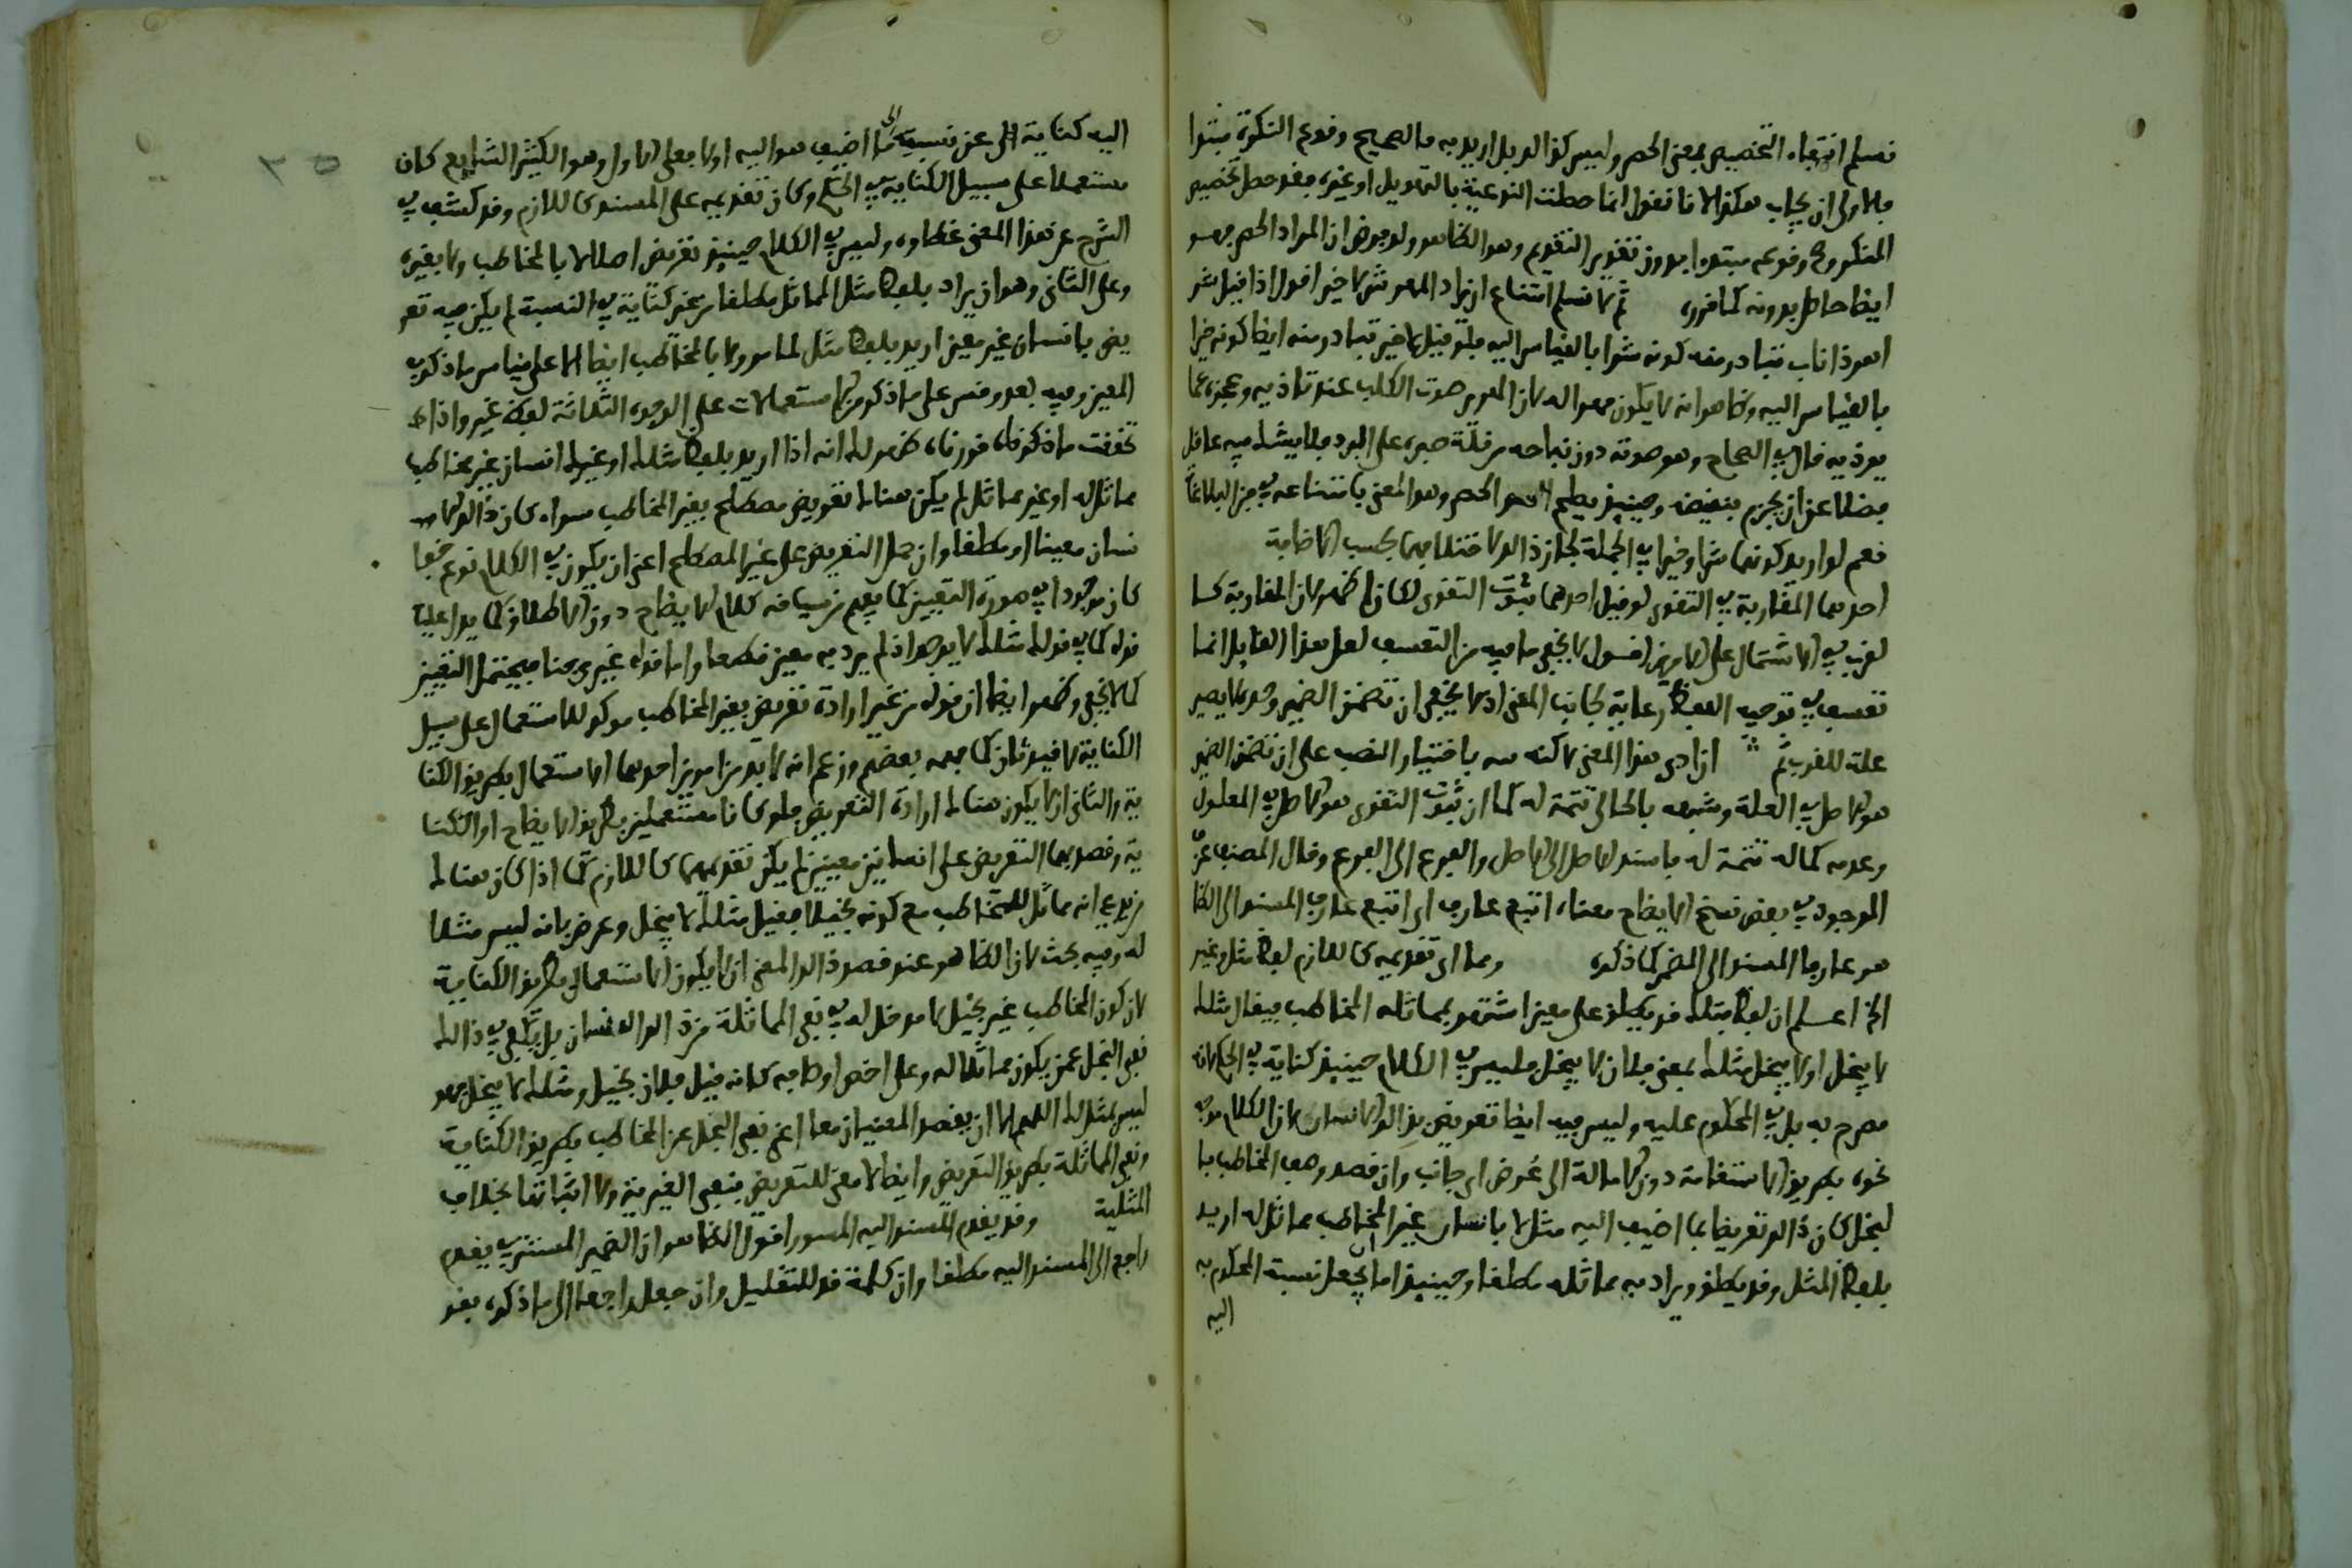 نسلم انتفاء التخصيص بمعنى الحصر وليس كذالك بل اريد به ما الصحيح وقوع النكرة مبتدا
فالاولى ان يجاب هكذا لانا نقول انما حصلت النوعية بالتهويل او غيره فقد حصل تخصيص
المنكر وصح وقوعه مبتدا بدون تقدير التقديم وهو الظاهر ولو فرض ان المراد الحصر فهو
ايضا حاصل بدونه كما قرره ثم لا نسلم امتناع ان يراد المهر شر لا خير اقول اذا قيل شر
اهر ذا ناب تبادر منه كونه شرا بالقياس اليه فلو قيل لا خير تبادر منه ايضا كونه خيرا
بالقياس اليه وظاهر انه لا يكون مهرا له لان الهرير صوت الكلب عند تاذيه وعجزه عما
يوذيه قال في الصحاح وهو صوته دون نباحه من قلة صبره على البرد فلا يشك فيه عاقل
فضلا عن ان يجزم بنقيضه وحينئذ يصح الحصر وهو المعنى بامتناعه في فن البلاغة
نعم لو اريد كونهما شرا وخيرا في الجملة لجاز ذالك لا قتلا فهما بحسب الاضافة
احدهما المقاربة في التقوى لو قيل احدهما ثبوت التقوى لكان اظهر لان المقاربة كما
لقرب في الاشتمال على الامرين اقول لا يخفى ما فيه من التعسف لعل هذا القايل انما
تعسف في توجيه اللفظ رعاية لجانب المعنى اذ لا يخفى ان تضمن الضمير وحده لا يصير
علة للقرب ثم ان ادى هذا المعنى لاكنه نبه باختيار النصب على ان تضمن الضمير
هو الاصل في العلة وشبهه بالخالي تتمة له كما ان ثبوت التقوى هو الاصل في المعلول
وعدم كماله تتمة له فاسند الاصل الى الاصل والفرع الى الفرع وقال المصنف عرف
الموجود في بعض نسخ الايضاح معناه اتبع عارف اي اتبع عارف المسند الى الظا
هر عارفا المسند الى المضمر كما ذكره ومما ارى تقديمه كاللازم لفظ مثل وغير
الخ اعلم ان لفظ مثلك قد يطلق على معين اشتهر بمماثلة المخاطب فيقال مثلك
لا يبخل او لا يبخل مثلك بمعنى فلان لا يبخل فليس في الكلام حينئذ كناية في الحكم لانه
مصرح به بل في المحكوم عليه وليس فيه ايضا تعريض بذالك الانسان لان الكلام موجه
نحوه بطريق الاستقامة دون الامالة الى عرض اي جانب وان قصد وصف المخاطب با
لبخل كان ذالك تعريضا بما اضيف اليه مثل لا بانسان غير المخاطب مماثل له اريد
بلفظ المثل وقد يطلق ويراد به مماثله مطلقا وحينئذ اما ان يجعل نسبة المحكوم به
اليه
اليه كناية عن نسبته الى ما اضيف هو اليه اولا فعلى الاول وهو الكثير الشايع كان
مستعملا على سبيل الكناية في الحكم وكان تقديمه على المسند كاللازم وقد كشف في
الشرح عن هذا المعنى غطاءه وليس في الكلام حينئذ تعريض اصلا لا بالمخاطب ولا بغيره
وعلى الثاني وهو ان يراد بلفظ مثل المماثل مطلقا من غير كناية في النسبة لم يكن فيه تعر
يض بانسان غير معين اريد بلفظ مثل لما مر ولا بالمخاطب ايضا الا على قياس ما ذكر في
المعين وفيه بعد وقس على ما ذكر من الاستعمالات على الوجوه الثلاثة لفظ غير واذا
تحققت ما ذكرناه وقررناه ظهر لك انه اذا اريد بلفظ مثلك او غيرك انسان غير مخاطب
مماثل له او غير مماثل لم يكن هناك تعريض مصطلح بغير المخاطب سواء كان ذالك الا
نسان معينا او مطلقا وان حمل التعريض على غير المصطلح اعني ان يكون في الكلام نوع خفا
كان موجودا في صورة التعيين كما يفهم من سياق كلام الايضاح دون الاطلاق كما يدل عليه
قوله كما في قوله مثلك لا يوجد اذ لم يرد به معين قطعا واما قوله غيري جنا فيحتمل التعيين
كما لا يخفى وظهر ايضا ان قوله من غير ارادة تعريض بغير المخاطب موكد للاستعمال على سبيل
الكناية لا قيد ثان كما فهمه بعضهم وزعم انه لا بد من امرين احدهما الاستعمال بطريق الكنا
ية والثاني ان لا يكون هناك ارادة التعريض فلو كانا مستعملين بطريق الايضاح او الكنا
ية وقصد بهما التعريض على انسانين معينين لم يكن تقديمهما كاللازم كما اذا كان هناك
من يدعي انه مماثل للمخاطب مع كونه بخيلا فقيل مثلك لا يبخل وعرض بانه ليس مثلا
له وفيه بحث لان الظاهر عند قصد ذالك المعنى ان لا يكون الاستعمال بطريق الكناية
لان كون المخاطب غير بخيل لا مدخل له في نفي المماثلة من ذالك الانسان بل يكفي في ذالك
نفي البخل عمن يكون مماثلا له وعلى اخص اوصافه كانه قيل فلان بخيل ومثلك لا يبخل فهو
ليس بمثل لك اللهم الا ان يقصد المعنيان معا اعني نفي البخل عن المخاطب بطريق الكناية
ونفي المماثلة بطريق التعريض وايضا لا معنى للتعريض بنفي الغيرية ولا اثباتها بخلاف
المثلية وقد يقدم المسند اليه المسور اقول الظاهر ان الضمير المستتر في يقدم
راجع الى المسند اليه مطلقا وان كلمة قد للتقليل وان جعل راجعا الى ما ذكره بقد
٣٥